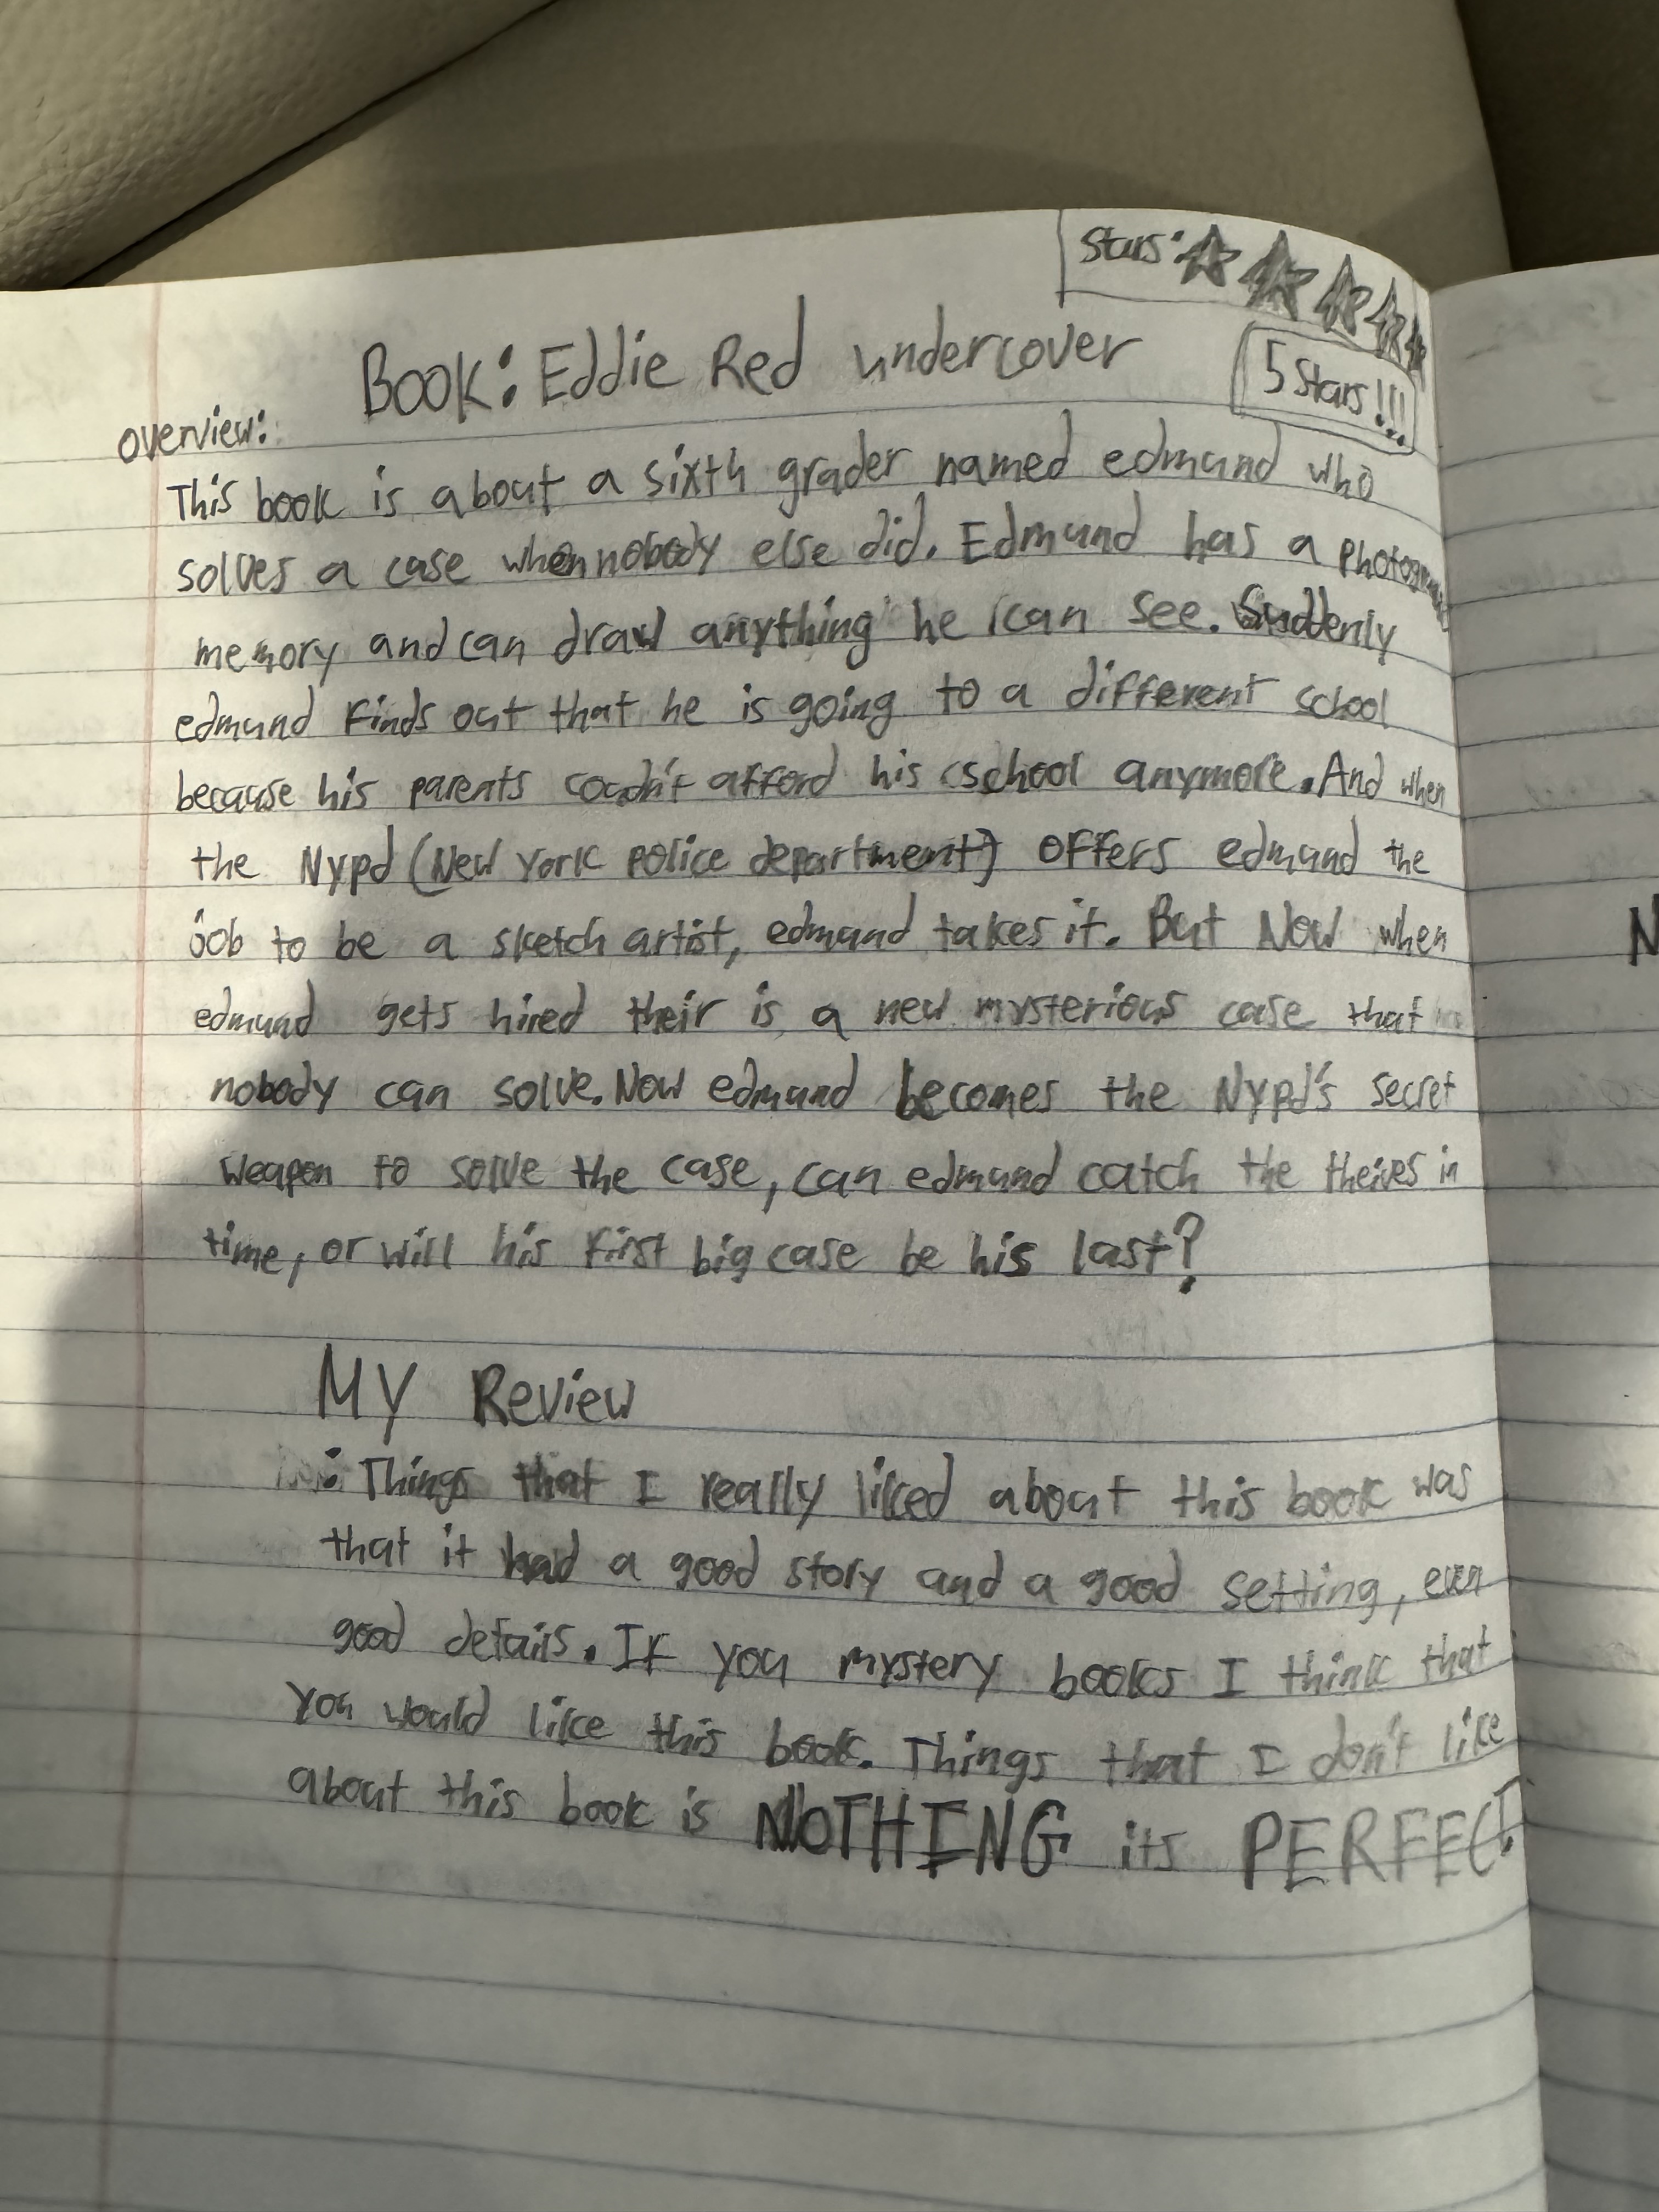 Stars: 
Book: Eddie Red undercover
5 Stars!!!
overview:
This book is about a sixth grader named edmund who
solves a case when nobody else did. Edmund has a
memory and can draw anything he can see. Suddenly
edmund finds out that he is going to a different school
because his parents coudn't afford his school anymore. And when
the Nypd (New York police department) offers edmund the
job to be a sketch artist, edmund takes it. But Now when
edmund gets hired their is a new mysterious case that
nobody can solve. Now edmund becomes the Nypd's secret
weapon to solve the case, can edmund catch the theives in
time, or will his first big case be his last?
MY Review
: Things that I really liked about this book was
that it had a good story and a good setting, even
good details. If you mystery books I think that
you would like this book. Things that I don't like
about this book is NOTHING its PERFECT
N